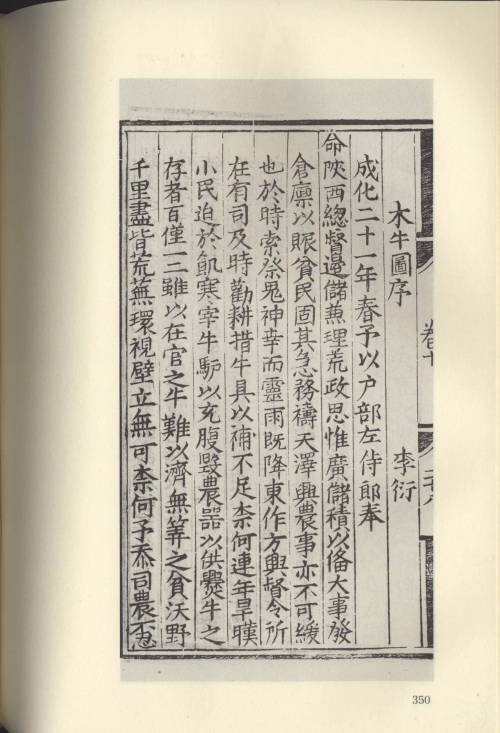 木牛圖序
李衍
成化二十一年春予以户部左侍郎奉
命陝西總督邊儲蕪理荒政思惟廣儲積以俻大事發
倉廩以賑貧民固其急務禱天澤興農事亦不可緩
也於時索祭鬼神幸而靈雨既降東作方興督令所
在有司及時勸耕措牛具以補不足柰何連年旱暵
小民迫於飢寒宰牛馿以充腹毀農器以供爨牛之
存者百僅一二雖以在官之牛難以濟無筭之貧沃野
千里盡皆荒蕪環視壁立無可柰何予忝司農
350